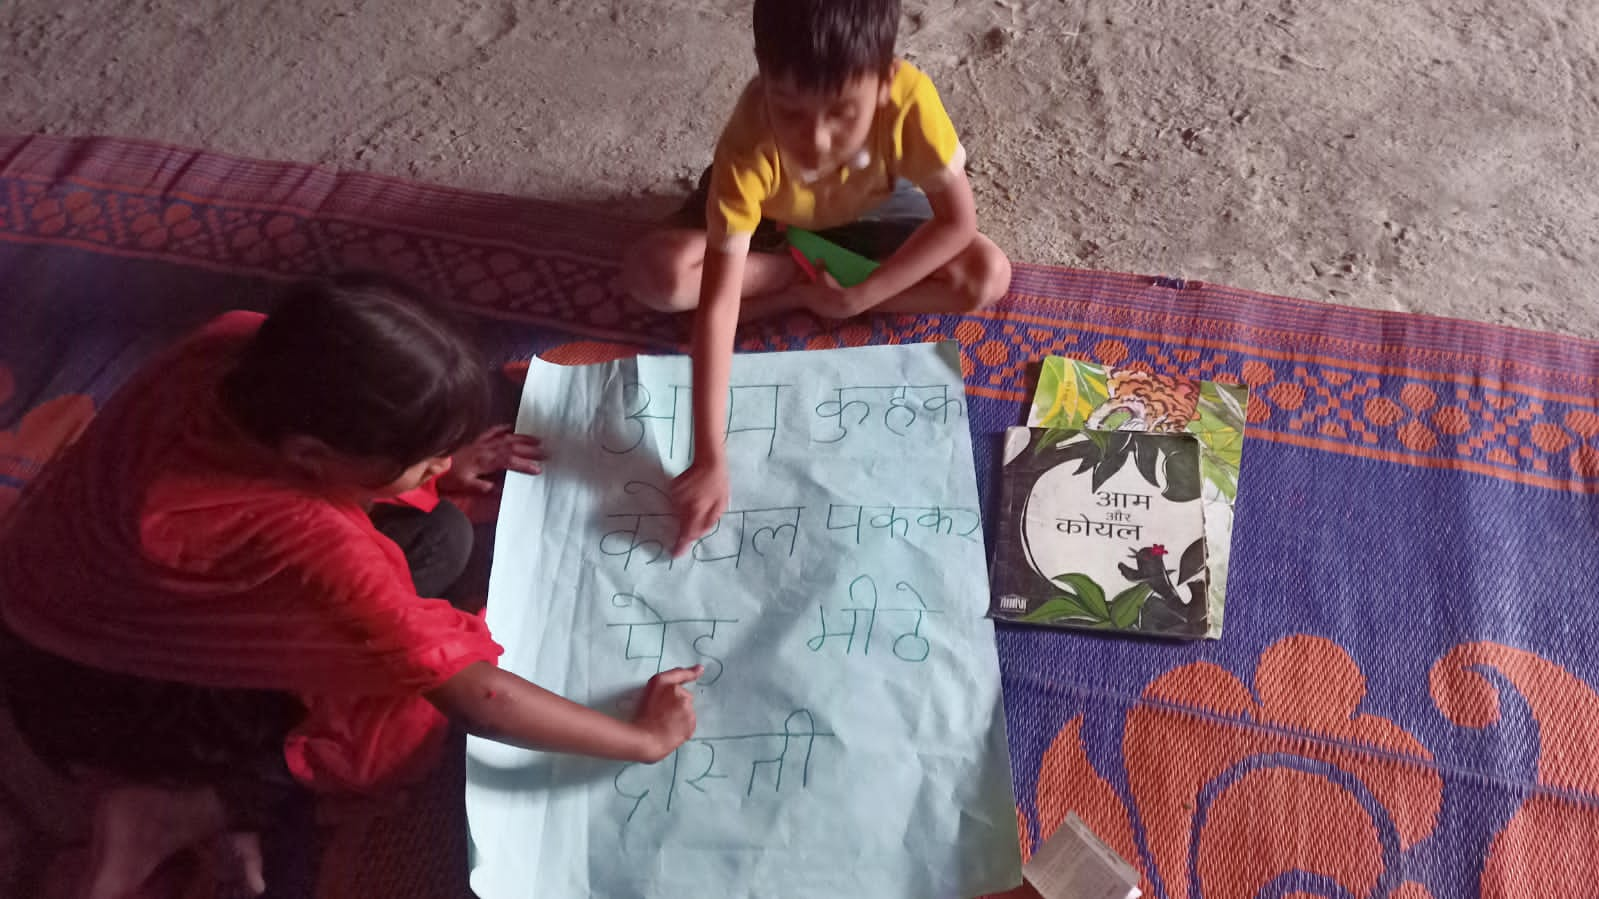 आम कुहक
कोयल पककर
पेड़ मीठे
दोस्ती
आम
और
कोयल